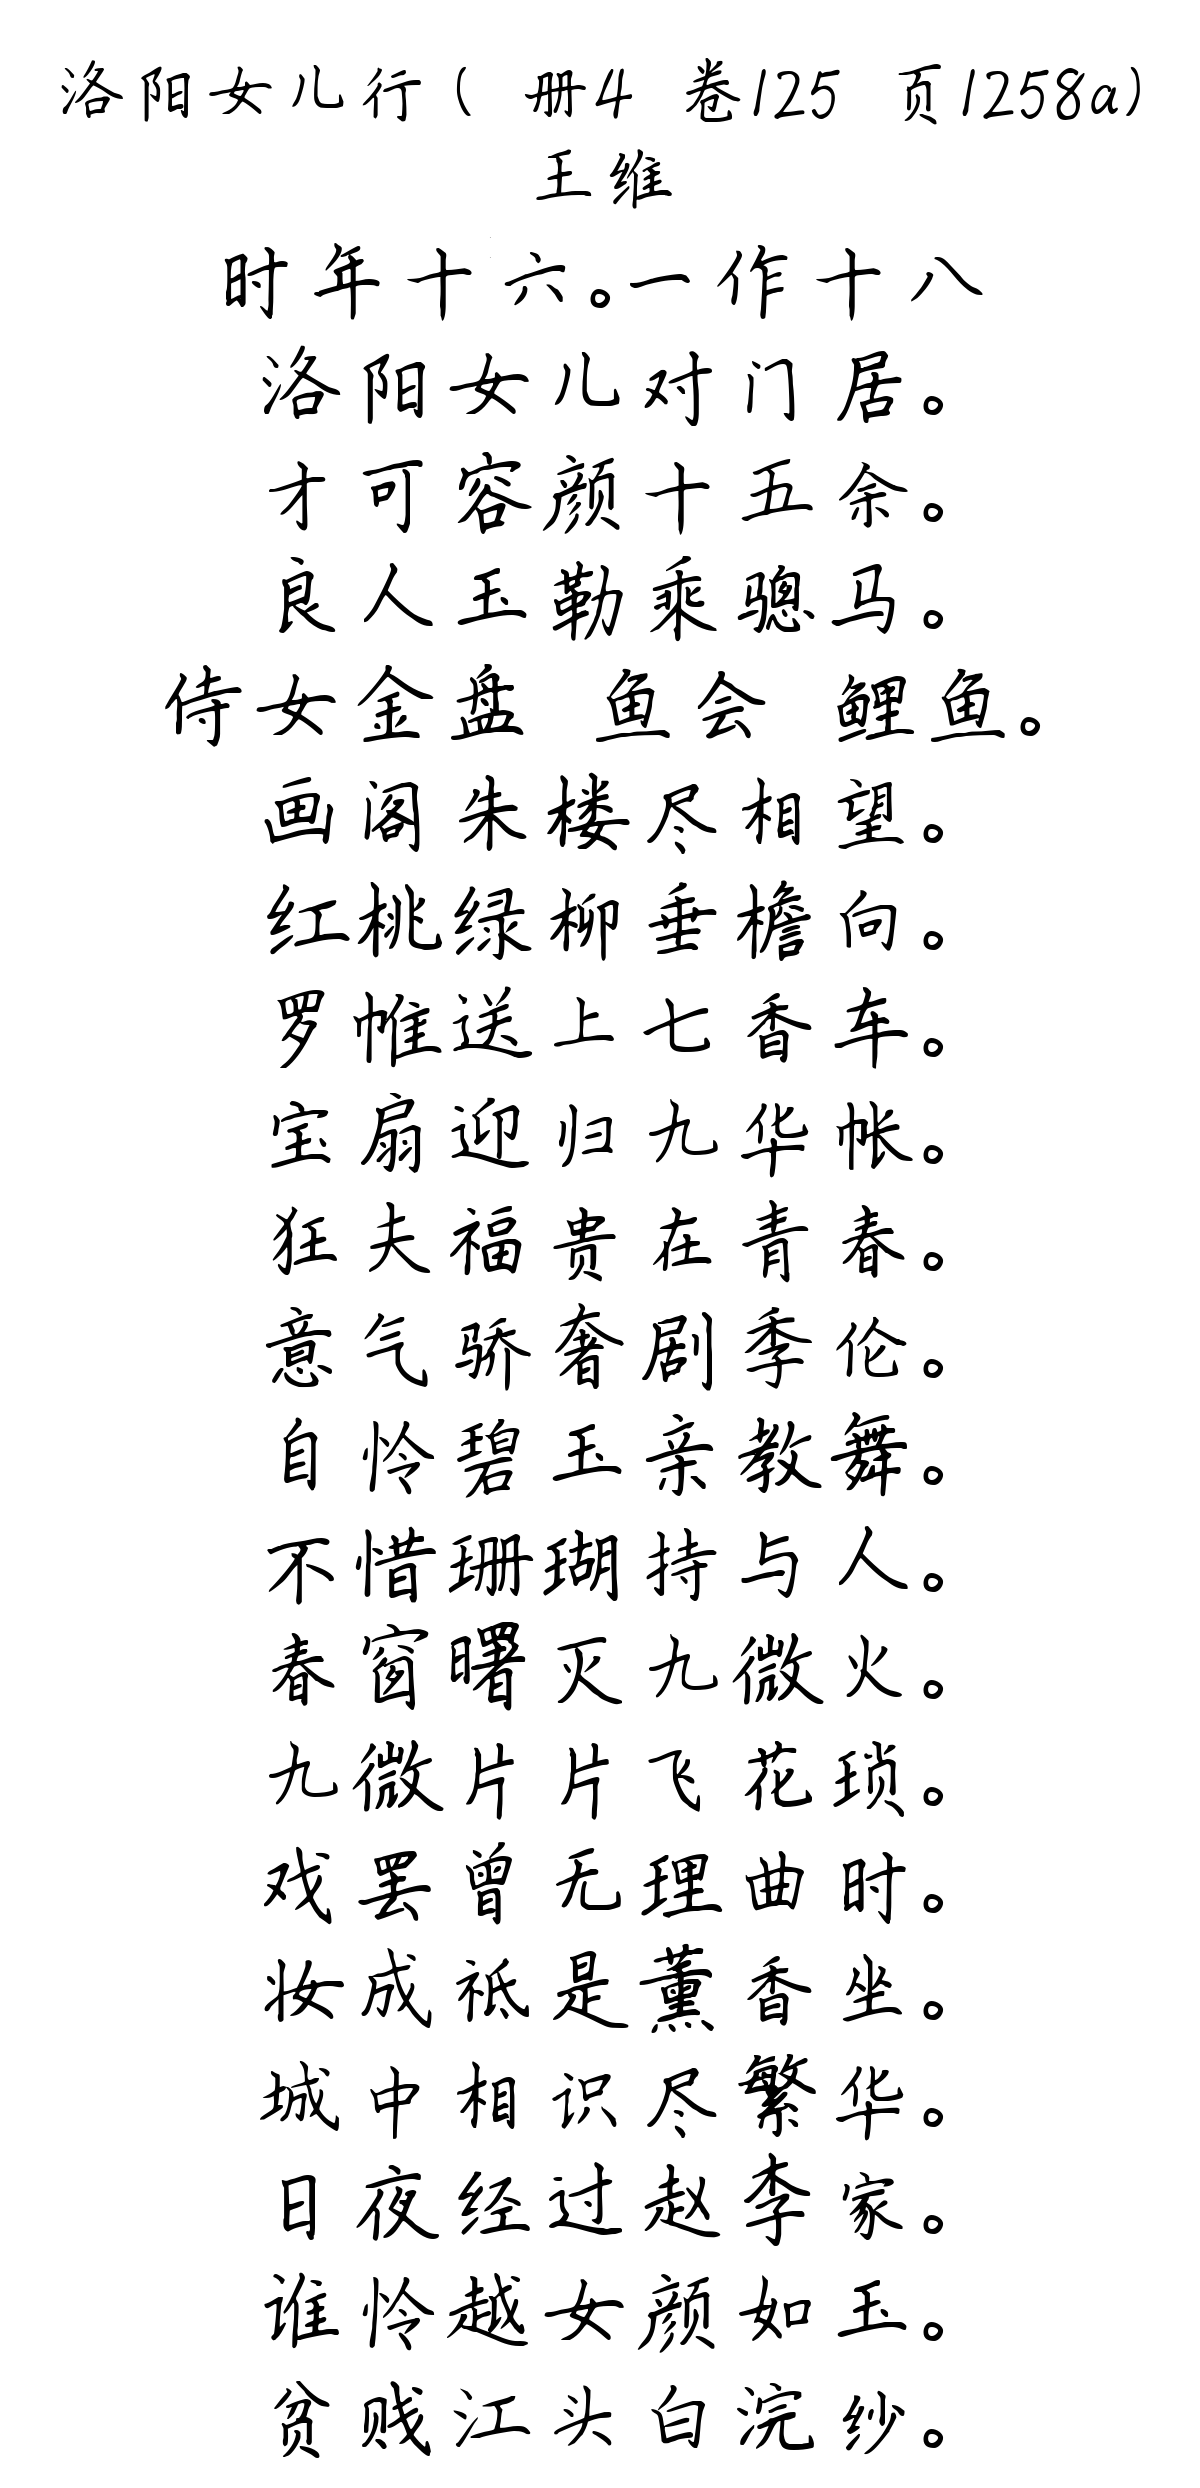 洛阳女儿行( 册4 卷125 页1258a)
王维
时年十六。一作十八
洛阳女儿对门居。
才可容颜十五余。
良人玉勒乘骢马。
侍女金盘 鱼会 鲤鱼。
画阁朱楼尽相望。
红桃绿柳垂檐向。
罗帷送上七香车。
宝扇迎归九华帐。
狂夫福贵在青春。
意气骄奢剧季伦。
自怜碧玉亲教舞。
不惜珊瑚持与人。
春窗曙灭九微火。
九微片片飞花琐。
戏罢曾无理曲时。
妆成祗是薰香坐。
城中相识尽繁华。
日夜经过赵李家。
谁怜越女颜如玉。
贫贱江头白浣纱。